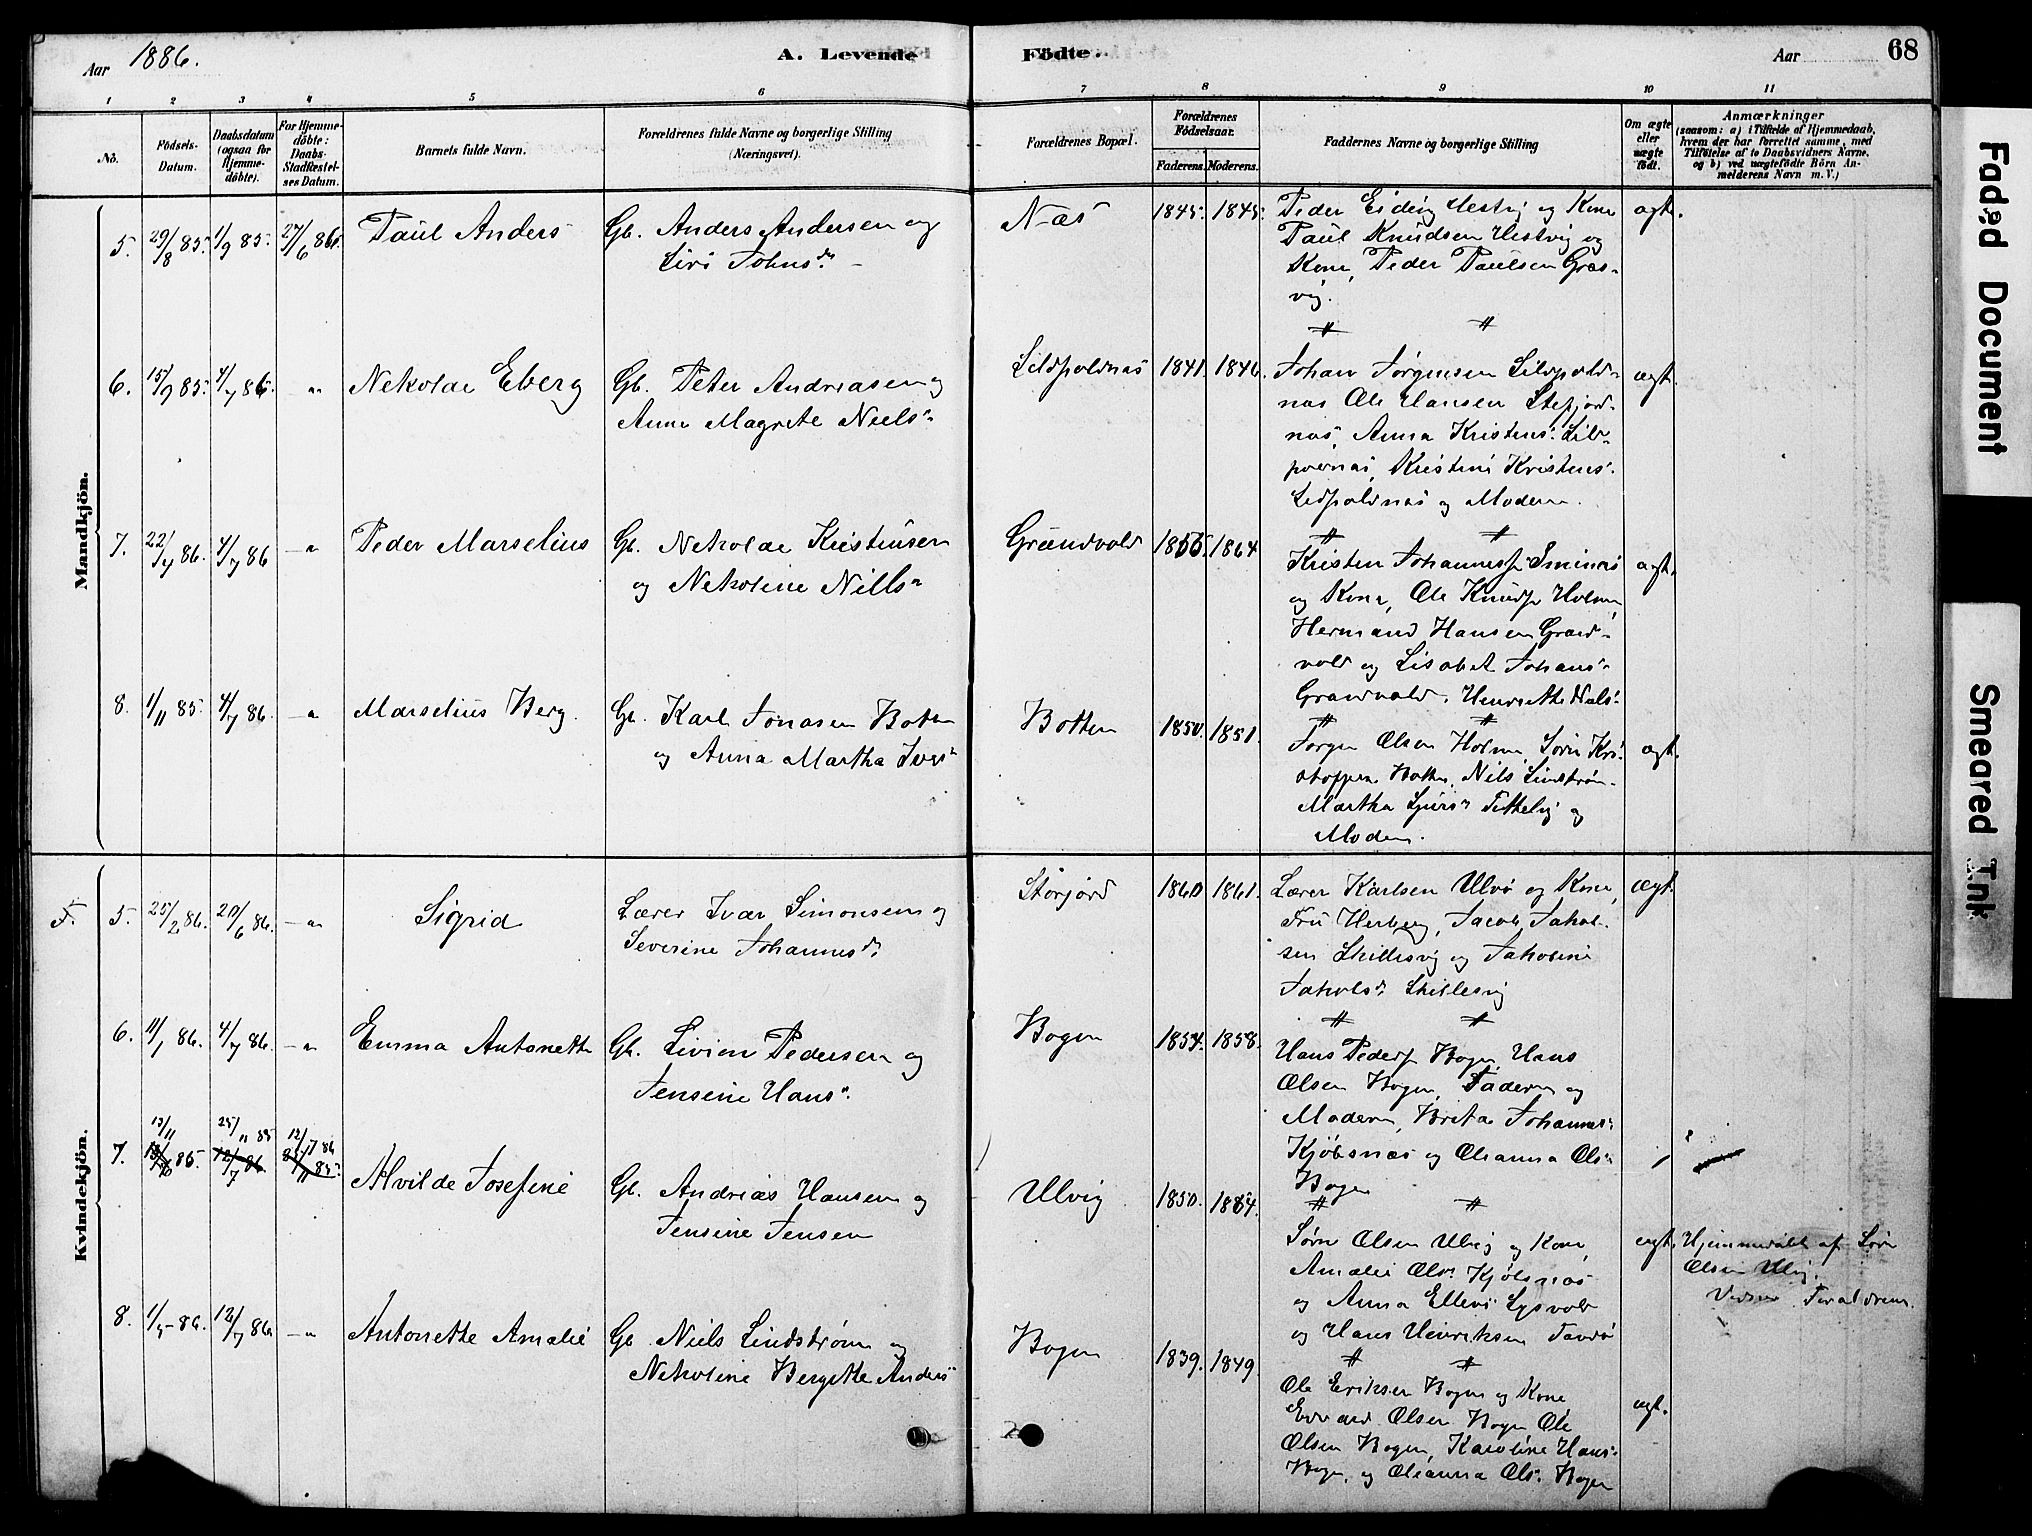 Aar 1886.
A. Levende Födte.
Aar 68
1 2 3 4 5 6 7 8 9 10 11
No.
Födsels-
Datum.
Daabsdatum
(ogsaa for
Hjemme-
döbte).
For Hjemme-
döbte:
Daabs-
Stadfæstel-
ses Datum.
Barnets fulde Navn.
Forældrenes fulde Navne og borgerlige Stilling
(Næringsvei).
Forældrenes Bopæl.
Forældrenes
Födselsaar.
Faderens. Moderens.
Faddernes Navne og borgerlige Stilling
Om ægte
eller
uægte
födt.
Anmærkninger
(saasom: a) i Tilfælde af Hjemmedaab,
hvem der har forrettet samme, med
Tilföielse af to Daabsvidners Navne,
og b) ved uægtefödte Börn An-
melderens Navn m. V.)
Mandkjön.
5. 29/8 85. 1/9 85. 27/6 86. Paul Anders
Gb. Anders Andersen og
Siri Johnsd.
Næs 1845. 1845.
Peder Eiding Hestvig og Kone
Paul Knudsen Hestvig og
Kone, Peder Paulsen Græs-
vig.
ægt.
6. 15/9 85. 4/7 86. Nekolde Eberg
Gb. Peter Andreasen og
Anne Magrete Niels"
Sildpoldnæs 1841. 1846.
Johan Jørgensen Sildpold-
næs Ole Hansen Stefjord-
næs, Anna Kristens. Sild-
Kristine Kristens.
Sildpoldnæs og Moderen.
ægt.
7. 22/4 86. 4/7 86 Peder Marselius
Gb. Nekolde Kristensen
og Nekoline Nills"
Grundvold 1864
Kristen
og Kone, Ole Holmen,
Hermand Hansen Grund-
vold og Lisabet Johans"
Grundvold. Henrette Niels"
ægt.
8. 1/11 85. 4/7 86. Marselius Berg.
Gb. Karl Jonasen Boten
og Anna Martha Ivers"
Botten 1850. 1851.
Jørgen Olsen Holmen, Søren Kri-
Botten, Nils Lindstrøm
Martha Tittelvig og
Moderen.
ægt.
Kvindekjön.
F. 5. 25/2 86. 20/6 86. Sigrid
Lærer Ivar Simonsen og
Severine Johannesd.
Storjord 1860 1861.
Lærer Karlsen Ulvø og Kone,
Fru Herberg, Jacob Jakob-
sen Skillesvig og Jakobine
Jakobsd. Skillesvig
ægt.
6. 11/1 86. 4/7 86. Emma Antonette
Gb. Sivion Pedersen og
Jensine Hans".
Bogen 1854. 1858.
Hans Peders. Bogen, Hans
Olsen Bogen, Faderen og
Moderen, Brita Johannes"
Kjöbsnæs og Oleanna Ols"
Bogen
7. 13/11 85. 25/11 85 12/7 86 Alvilde Josefine
Gb. Andreas Hansen og
Jensine Jensen
Ulvig 1850.
Sørn Olsen Ulvig og Kone,
Amalie Ols" Kjöbsnæs
og Anna Ellevs" Lysvold
og Hans Henriksen
ægt.
Hjemmedøbt af Sørn
Olsen Ulvig.
Vidner Forældrene.
8. 12/7 86. Antonette Amalie
Gb. Niels Lindstrøm og
Nekoline Bergitte Anders"
Bogen 1839. 1849.
Ole Eriksen Bogen og Kone
Edvard Olsen Bogen Ole
Olsen Bogen, Karoline Hans"
Bogen, og Oleanna Ols" Bogen
ægt.
Faded Document
Smeared Ink